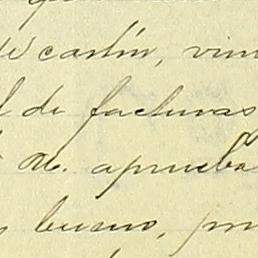 de carlín, vin
l de facturas
M. aprueba
bueno, pr